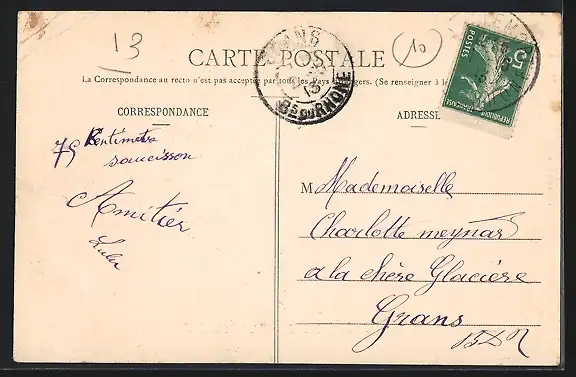 13
10
CARTE POSTALE
La Correspondance au recto n'est pas acceptée par tous les Pays étrangers. (Se renseigner à
CORRESPONDANCE
ADRESSE
GRANS
13
BES DU RHONE
5c
POSTES
REPUBLIQUE FRANÇAISE
75 Centimetre
saucisson
Amitiés
Lulu
M Mademoiselle
Charlotte meynard
a la chère Glacière
Grans
B D R